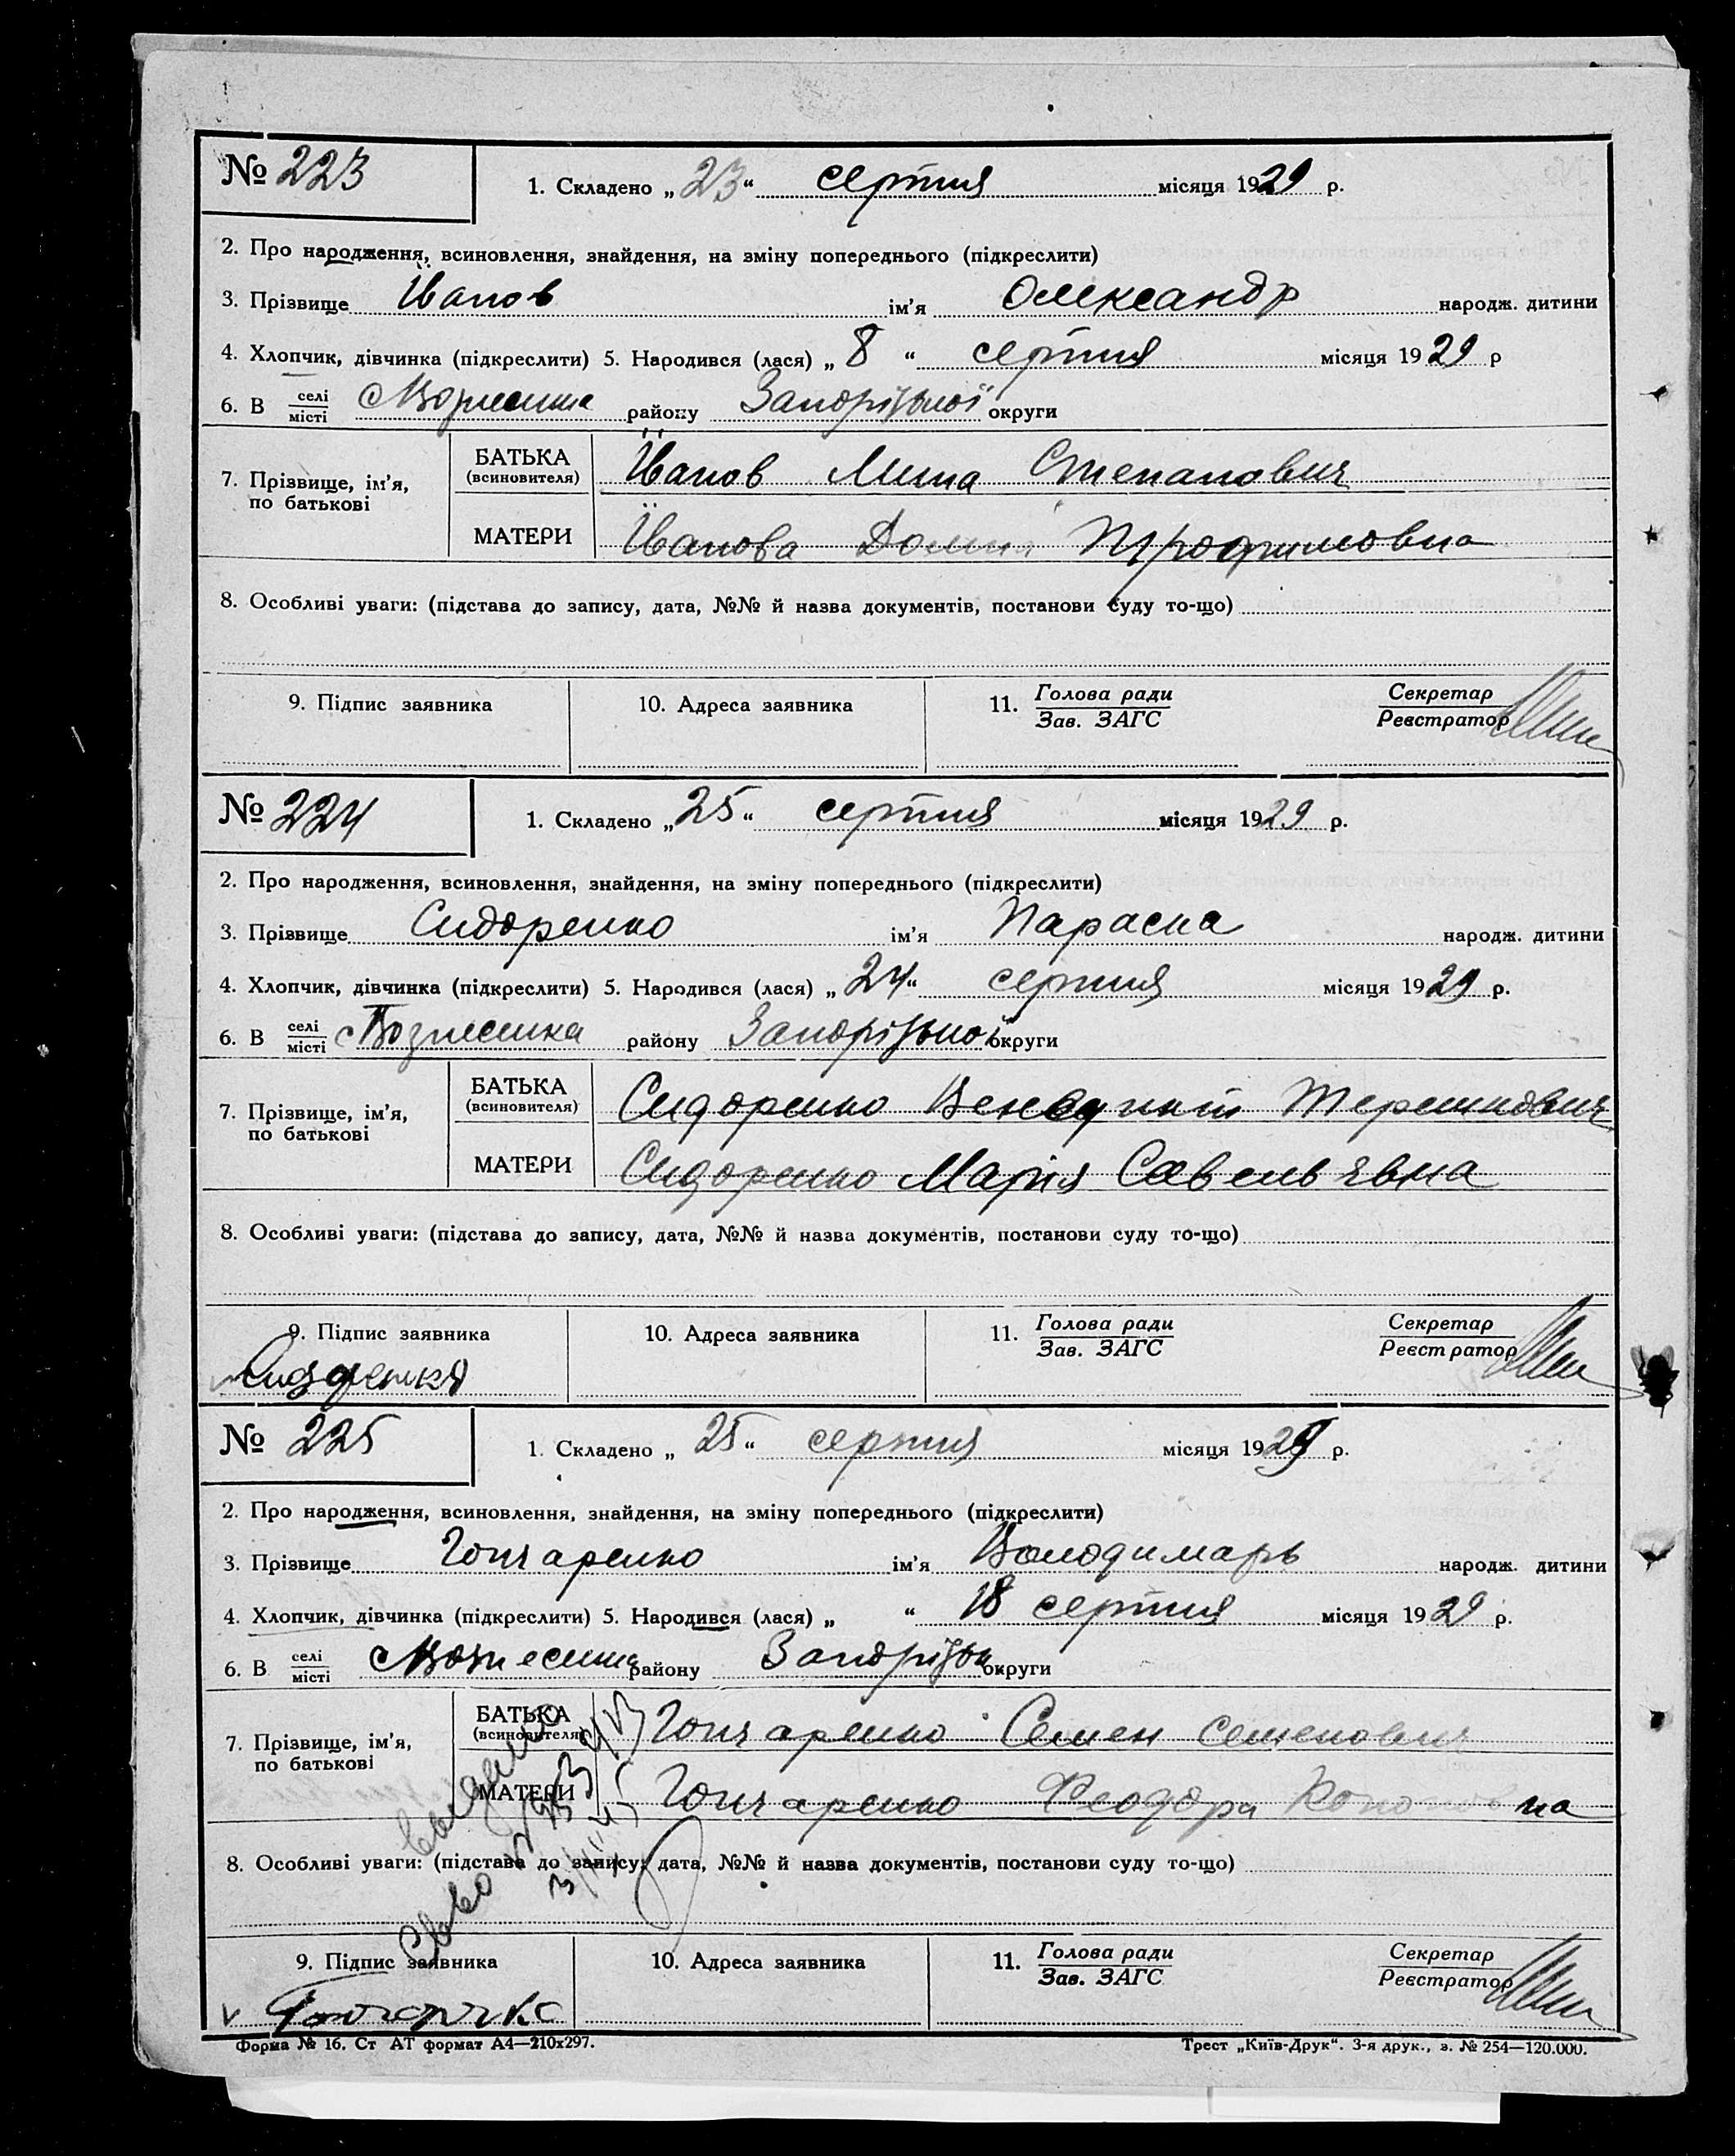 № 223 1. Складено „ 23 “ серпня місяця 1929 р.
2. Про народження, всиновлення, знайдення, на зміну попереднього (підкреслити)
3. Прізвище Іванов ім’я Олександр народж. дитини
4. Хлопчик, дівчинка (підкреслити) 5. Народився (лася) „ 8 “ серпня місяця 1929 р
6. В селі місті району Запорізької округи
7. Прізвище, ім’я, по батькові
БАТЬКА (всиновителя) Іванов Мина Степанович
МАТЕРИ Іванова Трофимовна
8. Особливі уваги: (підстава до запису, дата, №№ й назва документів, постанови суду то-що)
9. Підпис заявника 10. Адреса заявника 11. Голова ради Секретар
Зав. ЗАГС Реєстратор
№ 224 1. Складено „ 25 “ серпня місяця 1929 р.
2. Про народження, всиновлення, знайдення, на зміну попереднього (підкреслити)
3. Прізвище Сидоренко ім’я Параска народж. дитини
4. Хлопчик, дівчинка (підкреслити) 5. Народився (лася) „ 24 “ серпня місяця 1929 р.
6. В селі місті с Вознесенка району Запорізької округи
7. Прізвище, ім’я, по батькові
БАТЬКА (всиновителя) Сидоренко
МАТЕРИ Сидоренко Марія Савельявна
8. Особливі уваги: (підстава до запису, дата, №№ й назва документів, постанови суду то-що)
9. Підпис заявника 10. Адреса заявника 11. Голова ради Секретар
Зав. ЗАГС Реєстратор
№ 225 1. Складено „ 25 “ серпня місяця 1929 р.
2. Про народження, всиновлення, знайдення, на зміну попереднього (підкреслити)
3. Прізвище Гончаренко ім’я Володимарь народж. дитини
4. Хлопчик, дівчинка (підкреслити) 5. Народився (лася) „ “ 18 серпня місяця 1929 р.
6. В селі місті району Запорізьк округи
7. Прізвище, ім’я, по батькові
БАТЬКА (всиновителя) Гончаренко Семен Семенович
МАТЕРИ Гончаренко Феодора Кононовна
8. Особливі уваги: (підстава до запису, дата, №№ й назва документів, постанови суду то-що)
9. Підпис заявника 10. Адреса заявника 11. Голова ради Секретар
Зав. ЗАГС Реєстратор
Форма № 16. Ст АТ формат А4—210х297. Трест „Київ-Друк“. 3-я друк., з. № 254—120.000.